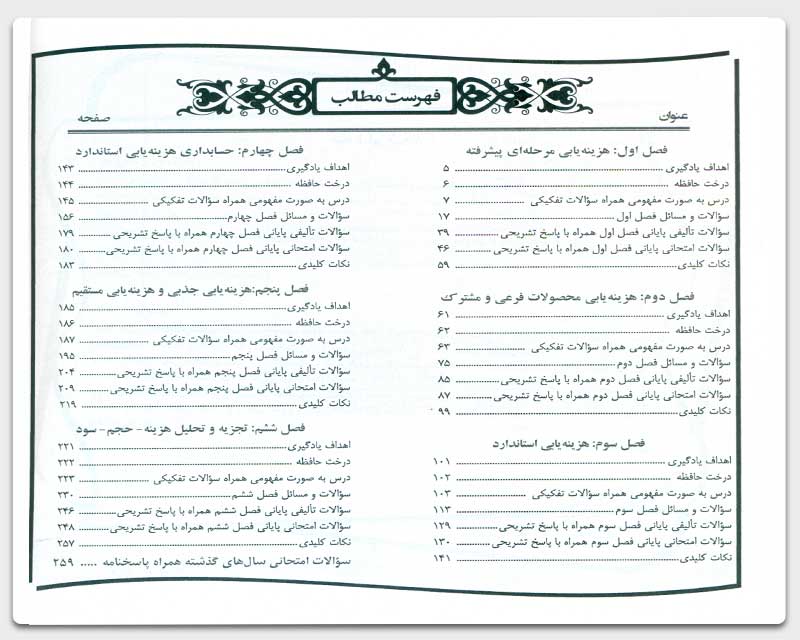 فهرست مطالب
عنوان
صفحه
فصل اول: هزینه‌یابی مرحله‌ای پیشرفته
اهداف یادگیری ۵
درخت حافظه ۶
درس به صورت مفهومی همراه سؤالات تفکیکی ۷
سؤالات و مسائل فصل اول ۱۷
سؤالات تألیفی پایانی فصل اول همراه با پاسخ تشریحی ۳۹
سؤالات امتحانی پایانی فصل اول همراه با پاسخ تشریحی ۴۶
نکات کلیدی ۵۹
فصل دوم: هزینه‌یابی محصولات فرعی و مشترک
اهداف یادگیری ۶۱
درخت حافظه ۶۲
درس به صورت مفهومی همراه سؤالات تفکیکی ۶۳
سؤالات و مسائل فصل دوم ۷۵
سؤالات تألیفی پایانی فصل دوم همراه با پاسخ تشریحی ۸۵
سؤالات امتحانی پایانی فصل دوم همراه با پاسخ تشریحی ۸۷
نکات کلیدی ۹۹
فصل سوم: هزینه‌یابی استاندارد
اهداف یادگیری ۱۰۱
درخت حافظه ۱۰۲
درس به صورت مفهومی همراه سؤالات تفکیکی ۱۰۳
سؤالات و مسائل فصل سوم ۱۱۳
سؤالات تألیفی پایانی فصل سوم همراه با پاسخ تشریحی ۱۲۹
سؤالات امتحانی پایانی فصل سوم همراه با پاسخ تشریحی ۱۳۰
نکات کلیدی ۱۴۱
فصل چهارم: حسابداری هزینه‌یابی استاندارد
اهداف یادگیری ۱۴۳
درخت حافظه ۱۴۴
درس به صورت مفهومی همراه سؤالات تفکیکی ۱۴۵
سؤالات و مسائل فصل چهارم ۱۵۶
سؤالات تألیفی پایانی فصل چهارم همراه با پاسخ تشریحی ۱۷۹
سؤالات امتحانی پایانی فصل چهارم همراه با پاسخ تشریحی ۱۸۰
نکات کلیدی ۱۸۳
فصل پنجم: هزینه‌یابی جذبی و هزینه‌یابی مستقیم
اهداف یادگیری ۱۸۵
درخت حافظه ۱۸۶
درس به صورت مفهومی همراه سؤالات تفکیکی ۱۸۷
سؤالات و مسائل فصل پنجم ۱۹۵
سؤالات تألیفی پایانی فصل پنجم همراه با پاسخ تشریحی ۲۰۴
سؤالات امتحانی پایانی فصل پنجم همراه با پاسخ تشریحی ۲۰۹
نکات کلیدی ۲۱۹
فصل ششم: تجزیه و تحلیل هزینه - حجم - سود
اهداف یادگیری ۲۲۱
درخت حافظه ۲۲۲
درس به صورت مفهومی همراه سؤالات تفکیکی ۲۲۳
سؤالات و مسائل فصل ششم ۲۳۰
سؤالات تألیفی پایانی فصل ششم همراه با پاسخ تشریحی ۲۴۶
سؤالات امتحانی پایانی فصل ششم همراه با پاسخ تشریحی ۲۴۸
نکات کلیدی ۲۵۷
سؤالات امتحانی سال‌های گذشته همراه پاسخنامه ..... ۲۵۹